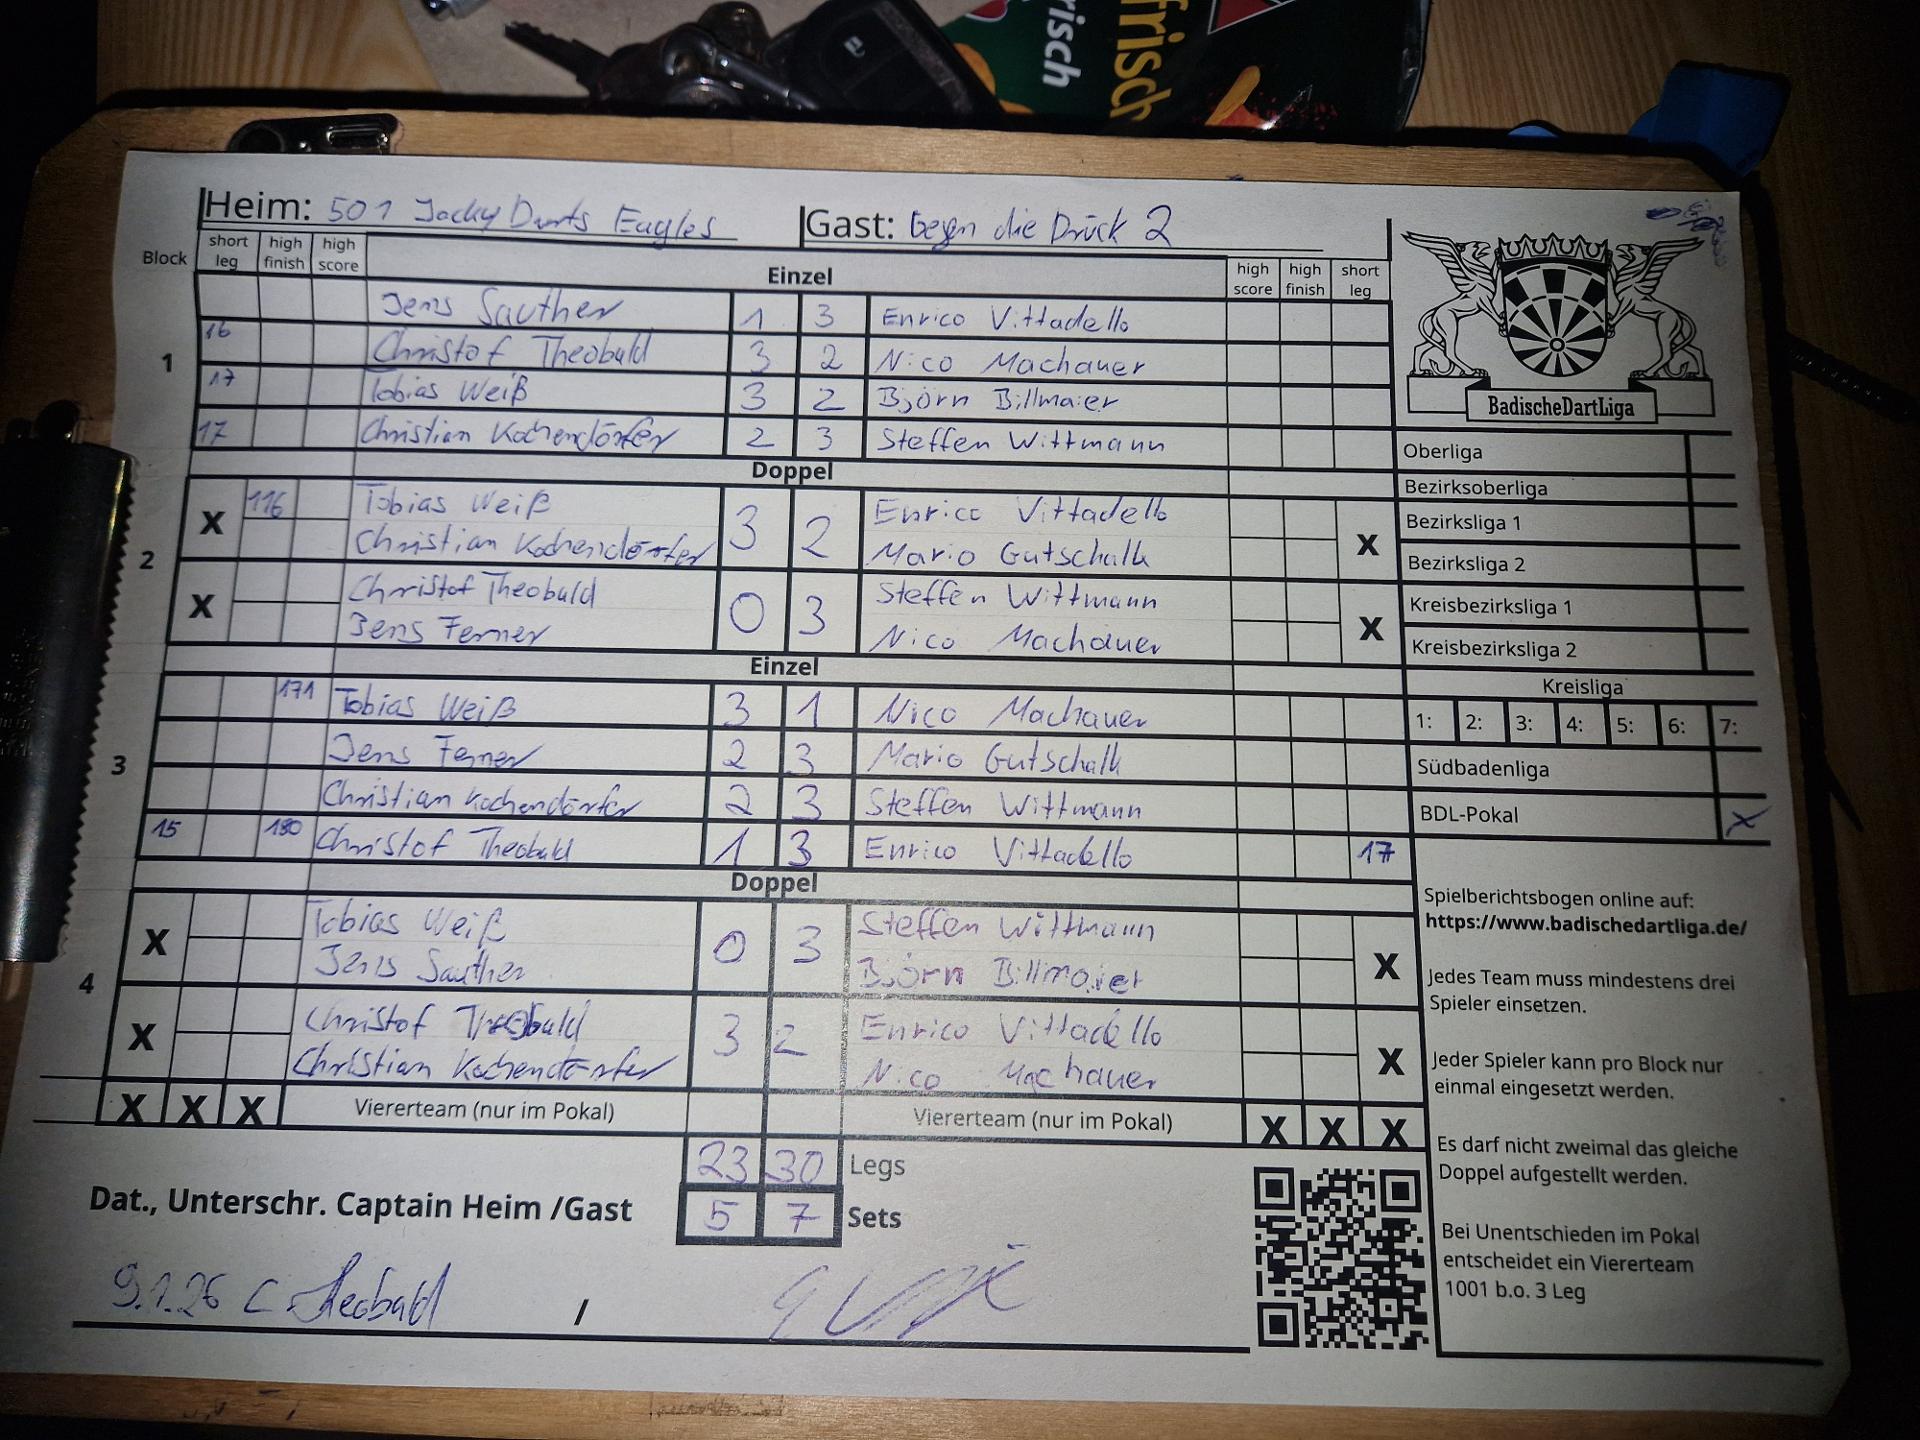 risch
frisch
Heim: 501 Jacky Darts Eagles Gast: Gegen die Drück 2
Block short leg high finish high score Einzel high score high finish short leg
Jens Sauther 1 3 Enrico Vittadello
1 16 Christof Theobald 3 2 Nico Machauer
17 Tobias Weiß 3 2 Björn Billmaier
17 Christian Kochendörfer 2 3 Steffen Wittmann
Doppel
2 X 116 Tobias Weiß 3 2 Enrico Vittadello X
Christian Kochendörfer Mario Gutschalk
X Christof Theobald 0 3 Steffen Wittmann X
Jens Ferner Nico Machauer
Einzel
3 171 Tobias Weiß 3 1 Nico Machauer
Jens Ferner 2 3 Mario Gutschalk
Christian Kochendörfer 2 3 Steffen Wittmann
15 180 Christof Theobald 1 3 Enrico Vittadello 17
Doppel
4 X Tobias Weiß 0 3 Steffen Wittmann X
Jens Sauther Björn Billmaier
X Christof Theobald 3 2 Enrico Vittadello X
Christian Kochendörfer Nico Machauer
X X X Viererteam (nur im Pokal) Viererteam (nur im Pokal) X X X
23 30 Legs
5 7 Sets
Dat., Unterschr. Captain Heim /Gast
9.1.26 C. Theobald /
BadischeDartLiga
Oberliga
Bezirksoberliga
Bezirksliga 1
Bezirksliga 2
Kreisbezirksliga 1
Kreisbezirksliga 2
Kreisliga
1: 2: 3: 4: 5: 6: 7:
Südbadenliga
BDL-Pokal X
Spielberichtsbogen online auf:
https://www.badischedartliga.de/
Jedes Team muss mindestens drei
Spieler einsetzen.
Jeder Spieler kann pro Block nur
einmal eingesetzt werden.
Es darf nicht zweimal das gleiche
Doppel aufgestellt werden.
Bei Unentschieden im Pokal
entscheidet ein Viererteam
1001 b.o. 3 Leg